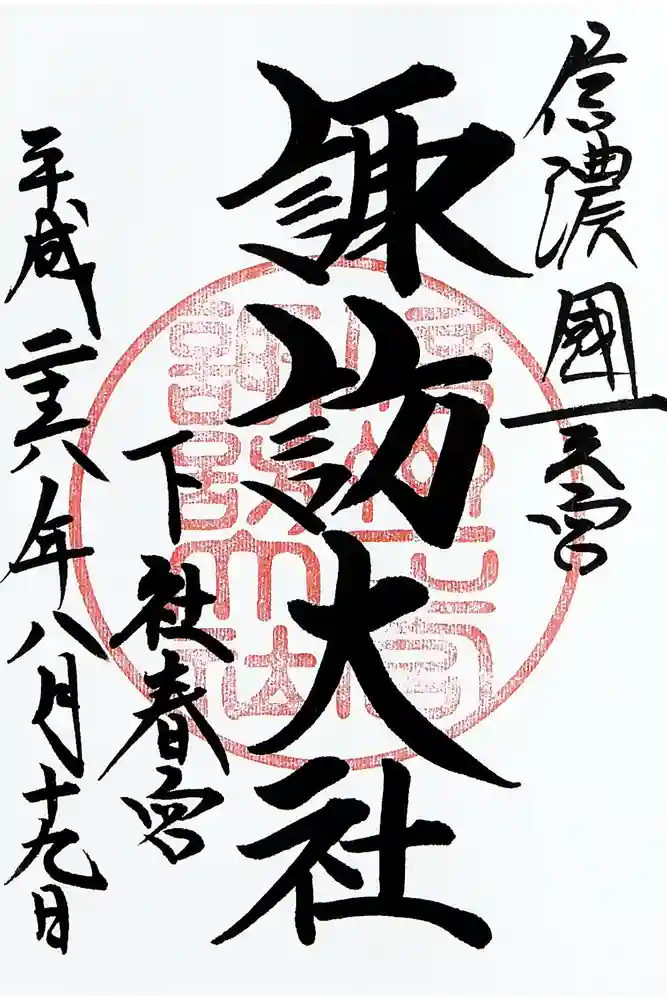 信濃國一之宮
諏訪大社
下社春宮
平成二十六年八月十九日